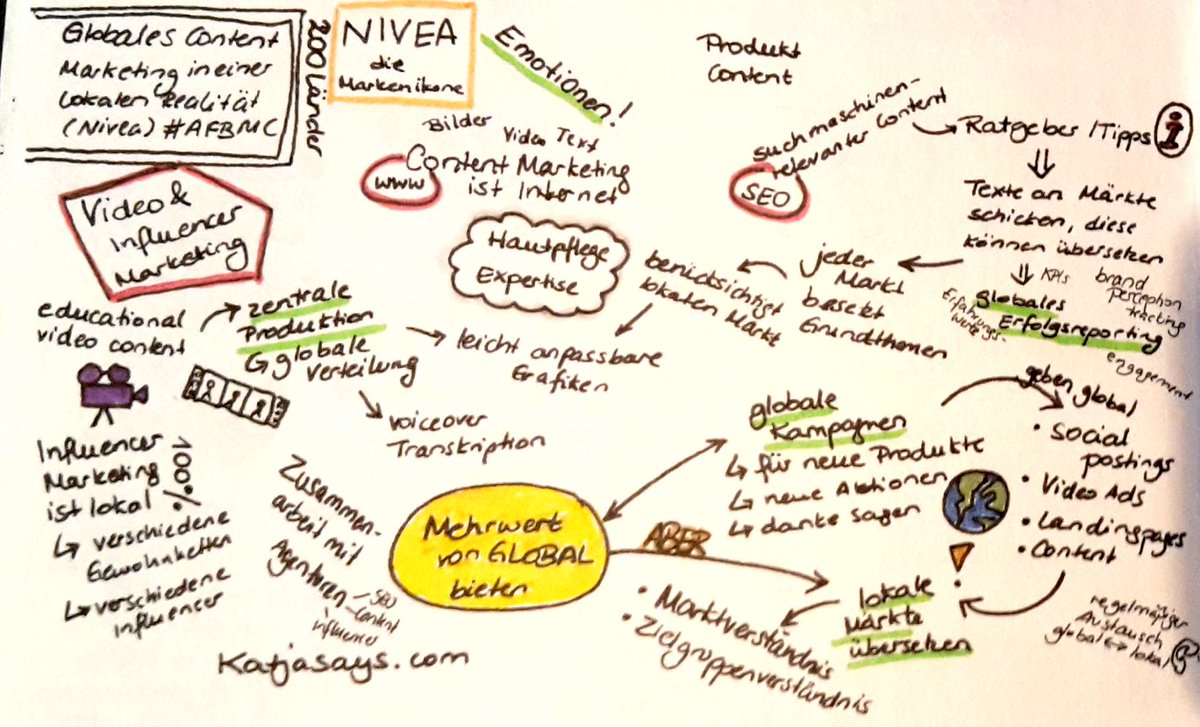 Globales Content
Marketing in einer
lokalen Realität
(Nivea) #AFBMC
200 Länder
NIVEA
die
Markenikone
Emotionen!
Produkt
Content
Bilder
Video Text
Content Marketing
ist Internet
www
suchmaschinen-
relevanter Content
SEO
Ratgeber / Tipps
i
Texte an Märkte
schicken, diese
können übersetzen
KPIs
brand
perception
tracking
globales
Erfolgsreporting
Erfahrungs-
werte
engagement
jeder
Markt
basket
Grundthemen
berücksichtigt
lokalen Markt
Hautpflege
Expertise
Video &
Influencer
Marketing
educational
video content
zentrale
Produktion
globale
Verteilung
leicht anpassbare
Grafiken
voiceover
Transkription
Influencer
Marketing
ist lokal
100%
verschiedene
Gewohnheiten
verschiedene
influencer
Zusammen-
arbeit mit
Agenturen
SEO
Content
influencer
Mehrwert
von GLOBAL
bieten
globale
Kampagnen
für neue Produkte
neue Aktionen
danke sagen
geben global
• Social
postings
• Video Ads
• Landingpages
• Content
ABER
lokale
Märkte
übersetzen
• Marktverständnis
• Zielgruppenverständnis
regelmäßiger
Austausch
global ↔ lokal
@
Katjasays.com